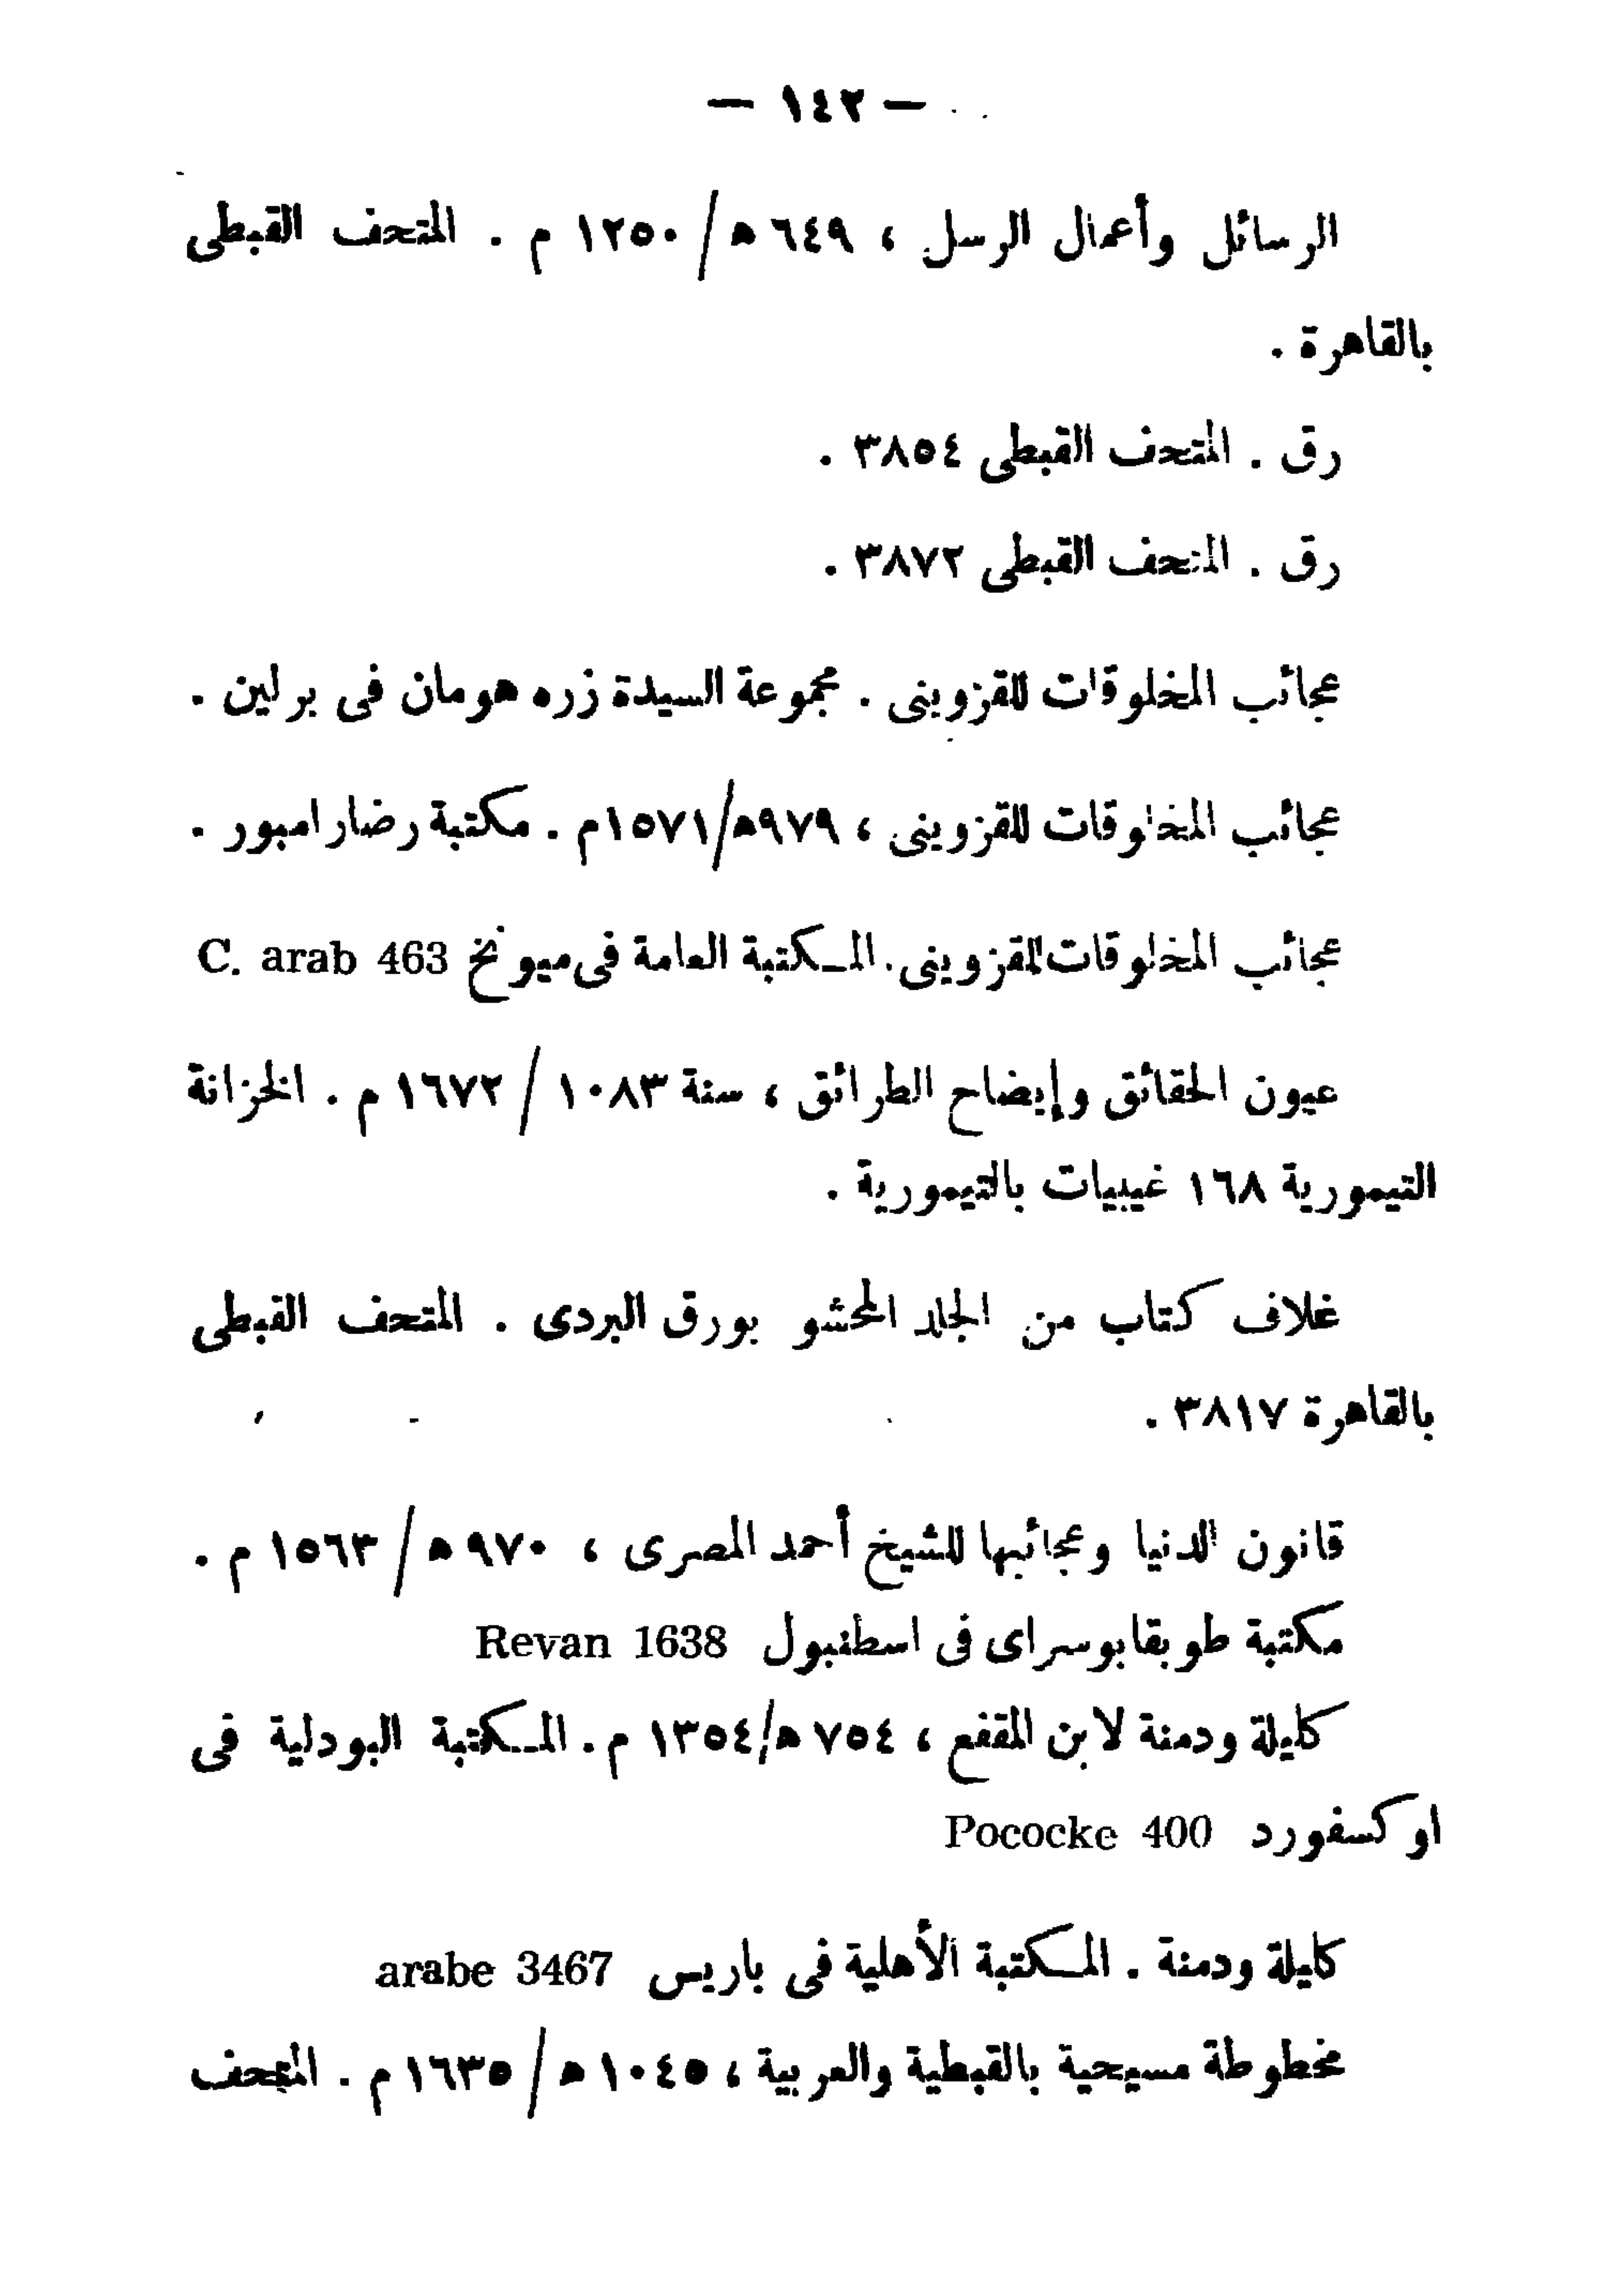 — ١٤٢ —
الرسائل وأعمال الرسل ، ٦٤٩ ه / ١٢٥٠ م . المتحف القبطى
بالقاهرة .
رق . المتحف القبطى ٣٨٥٤ .
رق . المتحف القبطى ٣٨٧٢ .
عجائب المخلوقات للقزوينى . مجموعة السيدة زره هومان فى برلين .
عجائب المخلوقات للقزوينى ، ٩٧٩ه/١٥٧١م . مكتبة رضا رامبور .
عجائب المخلوقات للقزوينى . المكتبة العامة فى ميونخ C. arab 463
عيون الحقائق وإيضاح الطرائق ، سنة ١٠٨٣ / ١٦٧٢ م . الخزانة
التيمورية ١٦٨ غيبيات بالتيمورية .
غلاف كتاب من الجلد المحشو بورق البردى . المتحف القبطى
بالقاهرة ٣٨١٧ .
قانون الدنيا وعجائبها للشيخ أحمد المصرى ، ٩٧٠ ه / ١٥٦٣ م .
مكتبة طوبقابوسراى فى اسطنبول Revan 1638
كليلة ودمنة لابن المقفع ، ٧٥٤ ه/١٣٥٤ م . المكتبة البودلية فى
اوكسفورد Pococke 400
كليلة ودمنة . المكتبة الأهلية فى باريس arabe 3467
مخطوطة مسيحية بالقبطية والعربية ، ١٠٤٥ ه / ١٦٣٥ م . المتحف